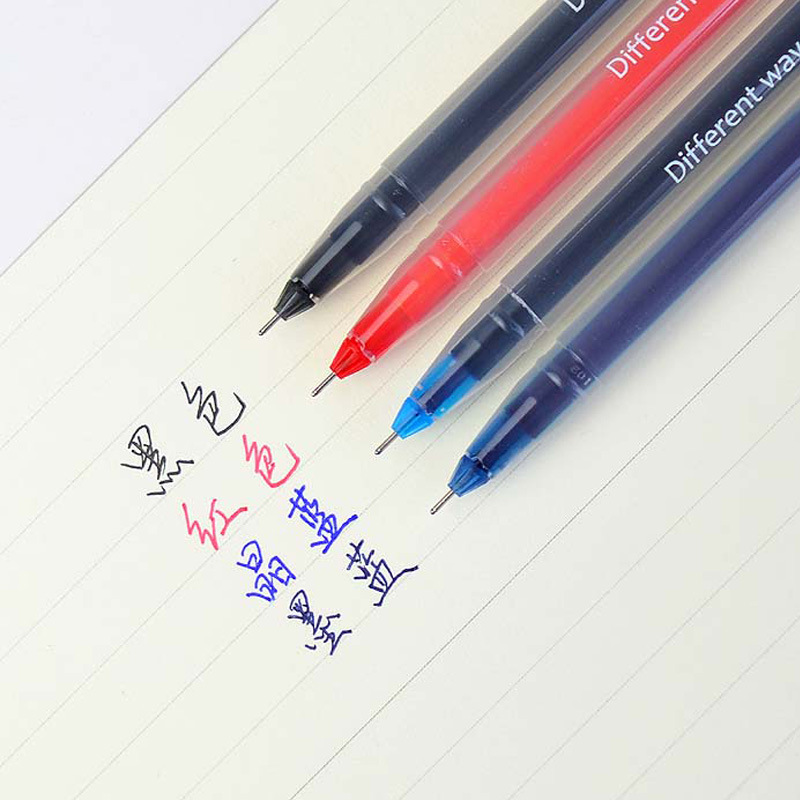 Differen
Different way
黑色
红色
晶蓝
墨蓝